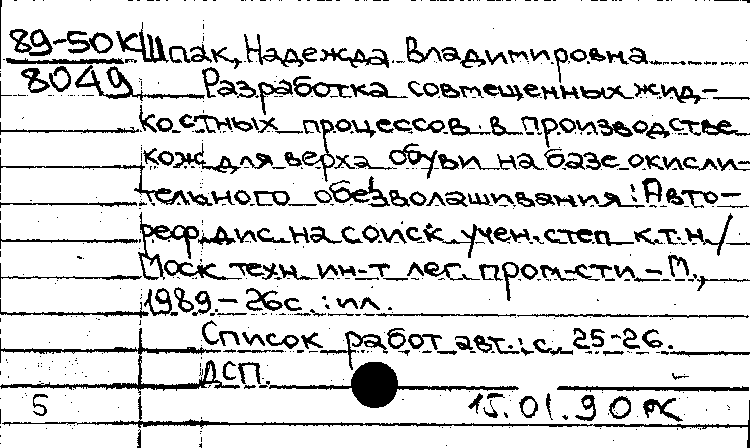 89-50К Шпак, Надежда Владимировна
8049 Разработка совмещенных жид-
костных процессов в производстве
кож для верха обуви на базе окисли-
тельного обезволашивания: Авто-
реф. дис. на соиск. учен. степ к.т.н. /
Моск техн. ин-т лег. пром-сти - М.,
1989. - 26с. : ил.
Список работ авт.: с. 25-26.
ДСП.
5 15.01.90